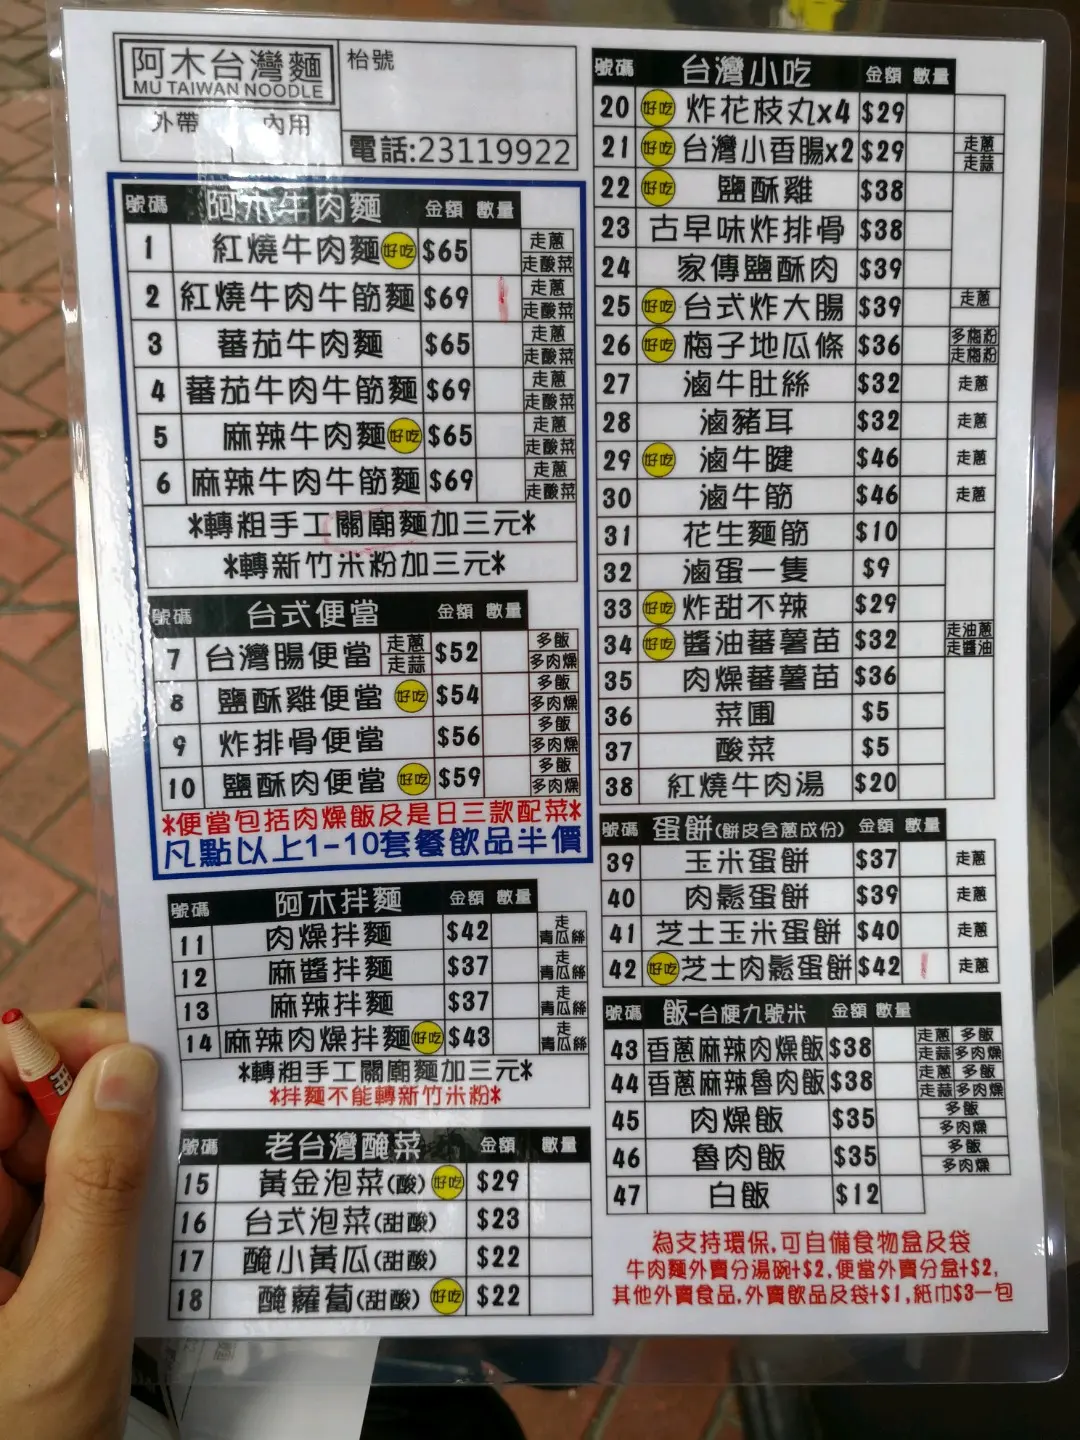 阿木台灣麵
MU TAIWAN NOODLE
外帶 內用
枱號
電話:23119922
號碼 阿木牛肉麵 金額 數量
1 紅燒牛肉麵 好吃 $65 走蔥 走酸菜
2 紅燒牛肉牛筋麵 $69 走蔥 走酸菜
3 蕃茄牛肉麵 $65 走蔥 走酸菜
4 蕃茄牛肉牛筋麵 $69 走蔥 走酸菜
5 麻辣牛肉麵 好吃 $65 走蔥 走酸菜
6 麻辣牛肉牛筋麵 $69 走蔥 走酸菜
*轉粗手工關廟麵加三元*
*轉新竹米粉加三元*
號碼 台式便當 金額 數量
7 台灣腸便當 走蔥 走蒜 $52 多飯 多肉燥
8 鹽酥雞便當 好吃 $54 多飯 多肉燥
9 炸排骨便當 $56 多飯 多肉燥
10 鹽酥肉便當 好吃 $59 多飯 多肉燥
*便當包括肉燥飯及是日三款配菜*
凡點以上1-10套餐飲品半價
號碼 阿木拌麵 金額 數量
11 肉燥拌麵 $42 走青瓜絲
12 麻醬拌麵 $37 走青瓜絲
13 麻辣拌麵 $37 走青瓜絲
14 麻辣肉燥拌麵 好吃 $43 走青瓜絲
*轉粗手工關廟麵加三元*
*拌麵不能轉新竹米粉*
號碼 老台灣醃菜 金額 數量
15 黃金泡菜(酸) 好吃 $29
16 台式泡菜(甜酸) $23
17 醃小黃瓜(甜酸) $22
18 醃蘿蔔(甜酸) 好吃 $22
號碼 台灣小吃 金額 數量
20 好吃 炸花枝丸x4 $29
21 好吃 台灣小香腸x2 $29 走蔥 走蒜
22 好吃 鹽酥雞 $38
23 古早味炸排骨 $38
24 家傳鹽酥肉 $39
25 好吃 台式炸大腸 $39 走蔥
26 好吃 梅子地瓜條 $36 多梅粉 走梅粉
27 滷牛肚絲 $32 走蔥
28 滷豬耳 $32 走蔥
29 好吃 滷牛腱 $46 走蔥
30 滷牛筋 $46 走蔥
31 花生麵筋 $10
32 滷蛋一隻 $9
33 好吃 炸甜不辣 $29
34 好吃 醬油蕃薯苗 $32 走油蔥 走醬油
35 肉燥蕃薯苗 $36
36 菜圃 $5
37 酸菜 $5
38 紅燒牛肉湯 $20
號碼 蛋餅(餅皮含蔥成份) 金額 數量
39 玉米蛋餅 $37 走蔥
40 肉鬆蛋餅 $39 走蔥
41 芝士玉米蛋餅 $40 走蔥
42 好吃 芝士肉鬆蛋餅 $42 走蔥
號碼 飯-台梗九號米 金額 數量
43 香蔥麻辣肉燥飯 $38 走蔥 多飯 走蒜 多肉燥
44 香蔥麻辣魯肉飯 $38 走蔥 多飯 走蒜 多肉燥
45 肉燥飯 $35 多飯 多肉燥
46 魯肉飯 $35 多飯 多肉燥
47 白飯 $12
為支持環保,可自備食物盒及袋
牛肉麵外賣分湯碗+$2,便當外賣分盒+$2,
其他外賣食品,外賣飲品及袋+$1,紙巾$3一包